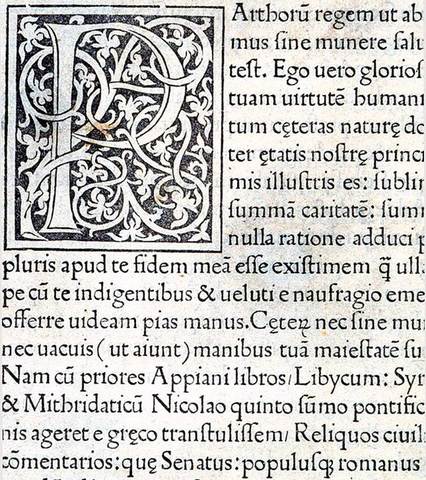 PArthorũ regem ut ab
mus ſine munere ſalu
teſt. Ego uero glorioſ
tuam uirtutẽ humani
tum cęteras naturę do
ter ętatis noſtrę princi
mis illuſtris es: ſublin
ſummã caritatẽ: ſumm
nulla ratione adduci p
pluris apud te fidem meã eſſe exiſtimem q̃ ull
pe cũ te indigentibus & ueluti e naufragio eme
offerre uideam pias manus. Cęteꝝ nec ſine mu
nec uacuis (ut aiunt) manibus tuã maieſtatẽ ſu
Nam cũ priores Appiani libros/Libycum: Syr
& Mithridaticũ Nicolao quinto ſũmo pontific
nis ageret e gręco tranſtuliſſem/ Reliquos ciuil
cõmentarios: quę Senatus: populuſqꝫ romanus